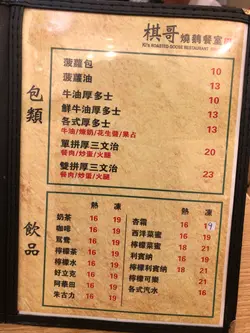 棋哥 燒鵝餐室
KI'S ROASTED GOOSE RESTAURANT
包類
菠蘿包 10
菠蘿油 13
牛油厚多士 10
鮮牛油厚多士 13
各式厚多士 13
牛油/煉奶/花生醬/果占
單拼厚三文治 20
餐肉/炒蛋/火腿
雙拼厚三文治 23
餐肉/炒蛋/火腿
飲品
熱 凍
奶茶 16 19
咖啡 16 19
鴛鴦 16 19
檸檬茶 16 19
檸檬水 16 19
好立克 16 19
阿華田 16 19
朱古力 16 19
熱 凍
杏霜 16 19
西洋菜蜜 16 19
檸檬菜蜜 18 21
利賓納 16 19
檸檬利賓納 18 21
檸檬可樂 21
各式汽水 16